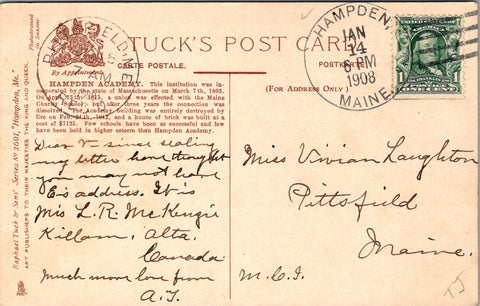 TUCK'S POST CARD
CARTE POSTALE.
POSTC
By Appointment.
(FOR ADDRESS ONLY)
HAMPDEN,
JAN
14
6 PM
1908
MAINE.
PITTSFIELD
7 AM
ME.
HAMPDEN ACADEMY. This institution was incorporated by the state of Massachusetts on March 7th, 1803.
a union was effected with the Maine
Charity School, but after three years the connection was
dissolved. The Academy building was entirely destroyed by
fire on and a house of brick was built at a cost
of $1125. Few schools have been as successful and few
have been held in higher esteem than Hampden Academy.
Dear V- since sealing
my letter have thought
you may not have
E's address. It is
Mrs L.R. McKenzie
Killam, Alta.
Canada
Much more love from
A.T.
Miss Vivian Laughton
Pittsfield
Maine.
M.C.I.
Raphael Tuck & Sons' Series No 2001, "Hampden, Me."
ART PUBLISHERS TO THEIR MAJESTIES THE KING AND QUEEN.
Photochromed in Saxony
1
1